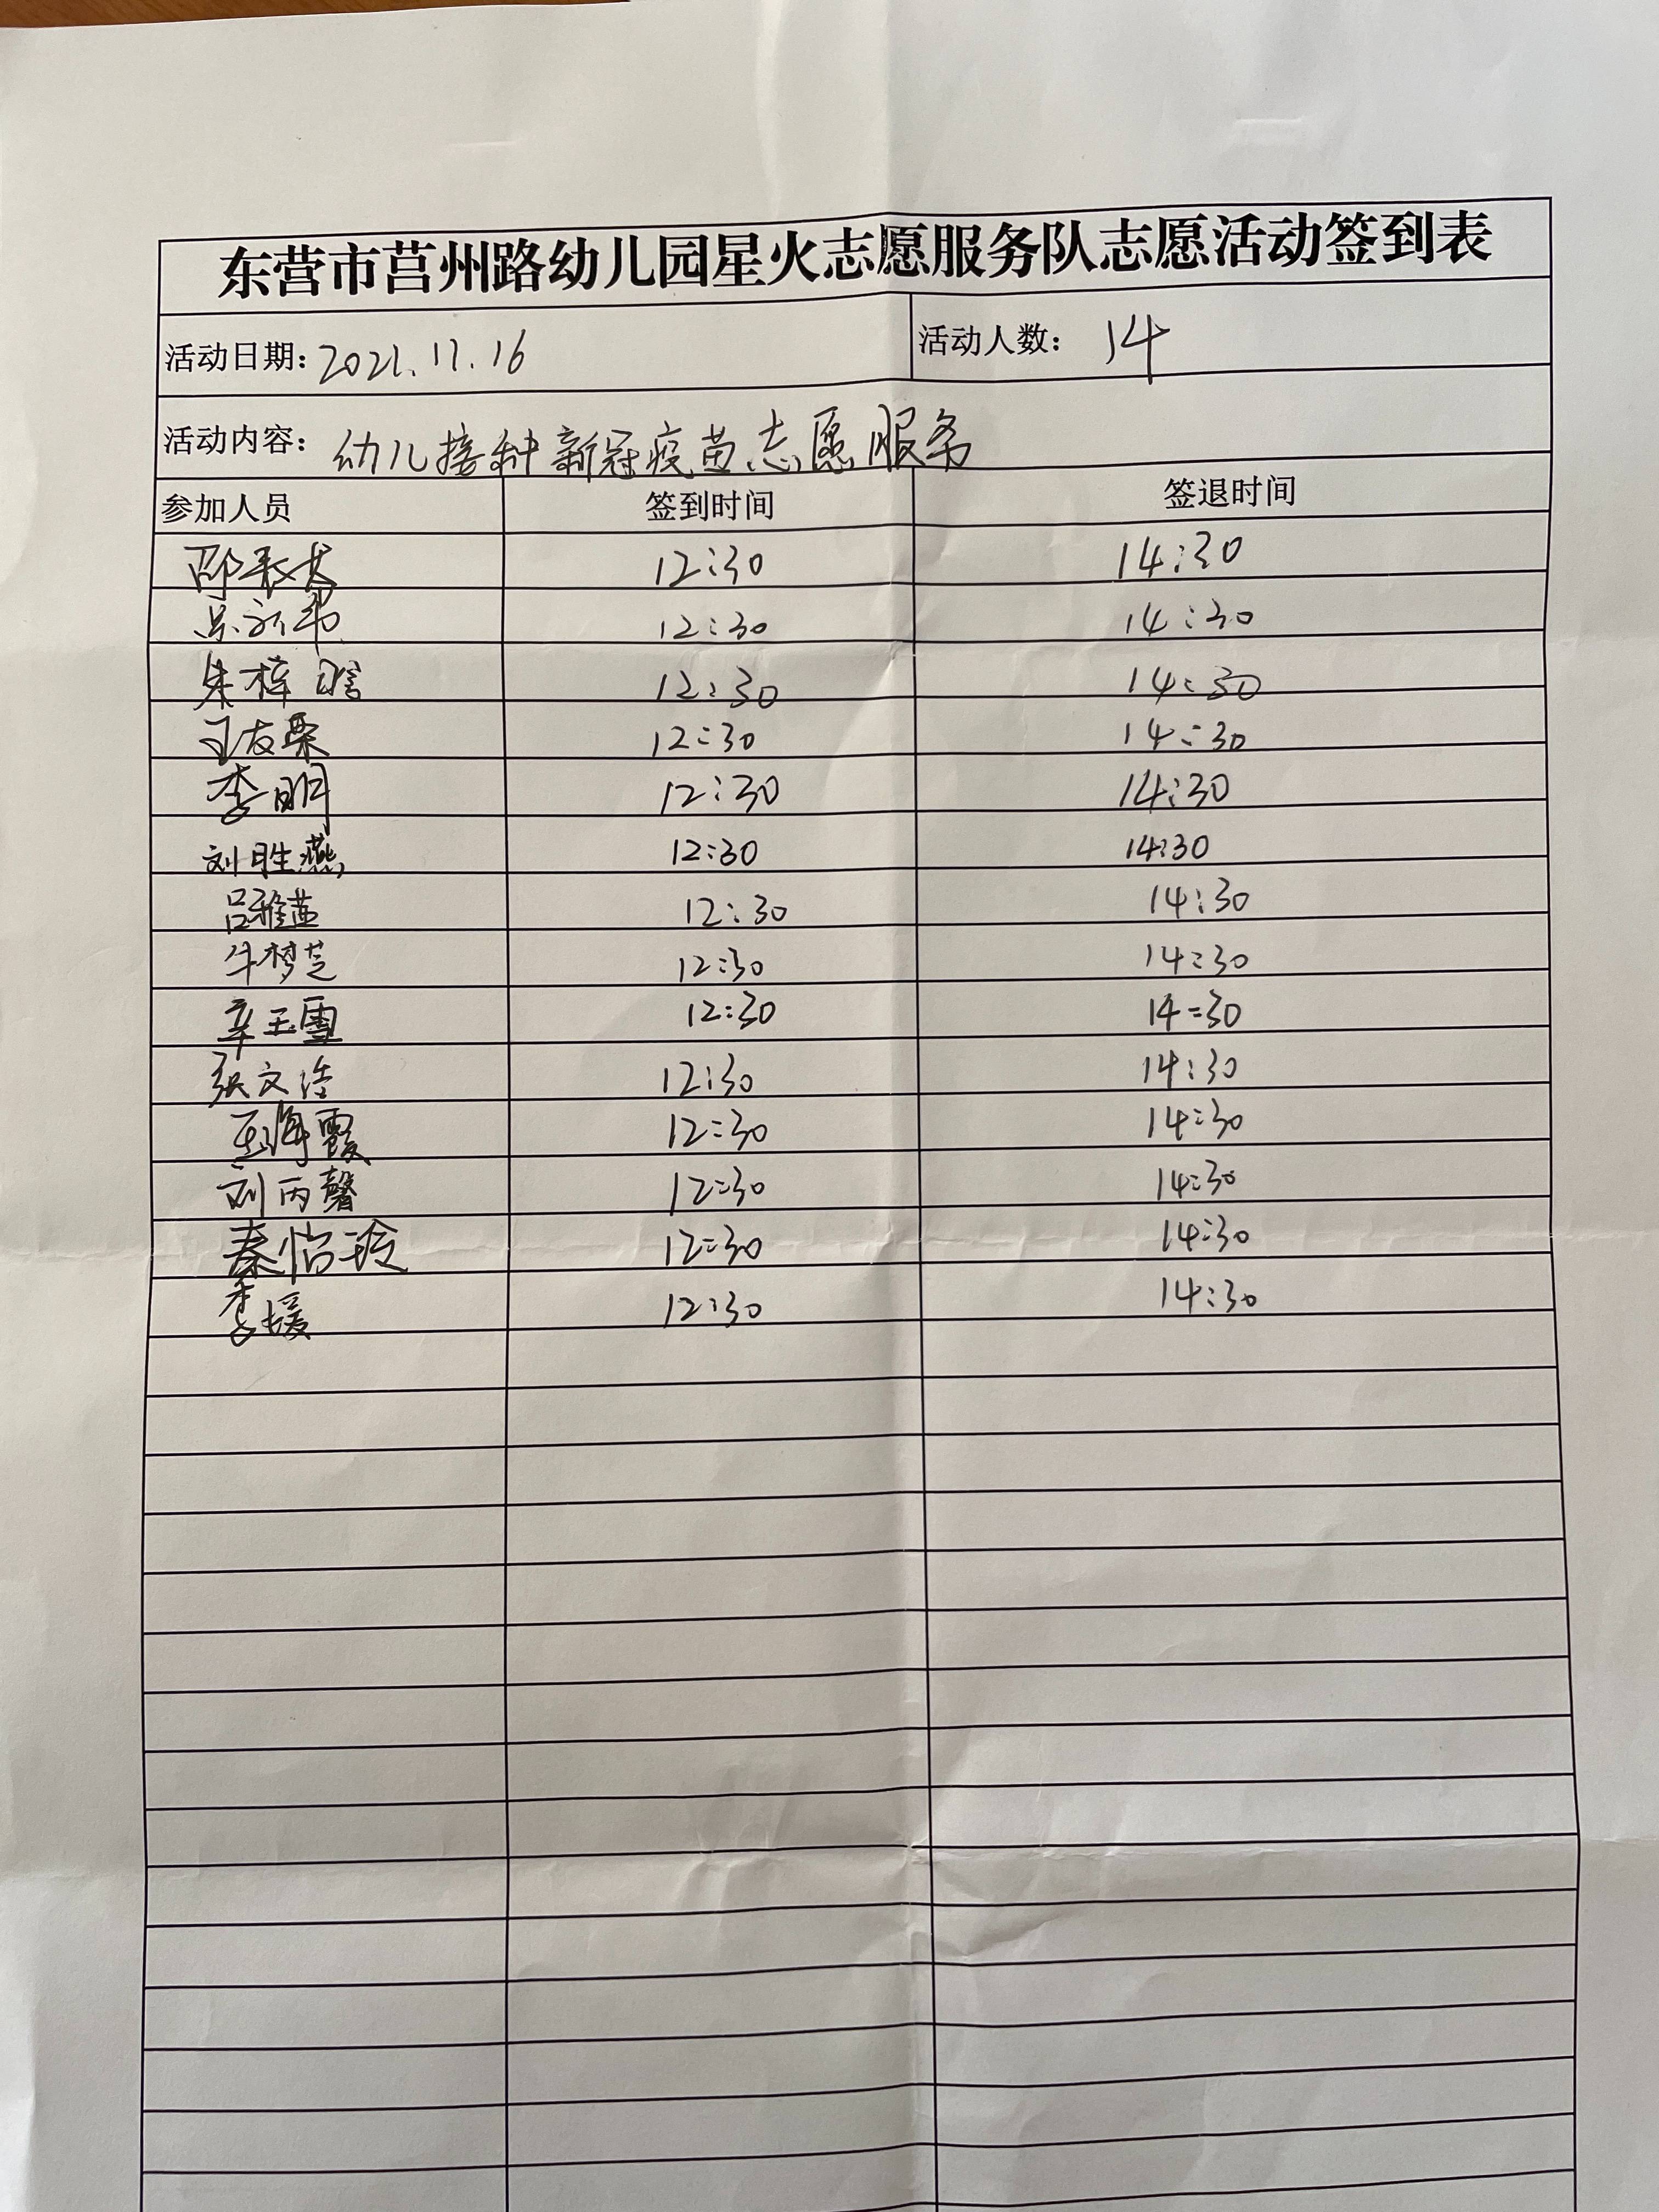 东营市莒州路幼儿园星火志愿服务队志愿活动签到表
活动日期：2021.11.16 活动人数：14
活动内容：幼儿接种新冠疫苗志愿服务
参加人员 签到时间 签退时间
12:30 14:30
12:30 14:30
朱梓晗 12:30 14:30
12:30 14:30
李明 12:30 14:30
刘胜燕 12:30 14:30
吕雅 12:30 14:30
牛梦芝 12:30 14:30
辛玉雪 12:30 14:30
张文浩 12:30 14:30
王海霞 12:30 14:30
刘丙馨 12:30 14:30
秦怡玲 12:30 14:30
李媛 12:30 14:30